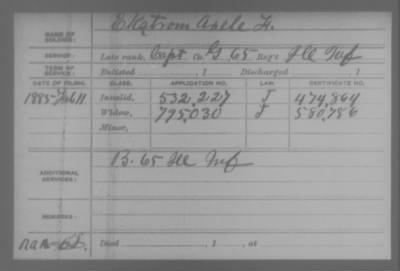 NAME OF SOLDIER: Ekstrom Axele F.
SERVICE: Late rank, Capt Co. G 65 Reg't Ill Inf
TERM OF SERVICE: Enlisted , 1 Discharged , 1
DATE OF FILING. CLASS. APPLICATION NO. LAW. CERTIFICATE NO.
1885-Feb 11 Invalid, 532,227 J 474,864
Widow, 795,030 J 580,786
Minor,
ADDITIONAL SERVICES: B. 65 Ill Inf
REMARKS:
Died , 1 , at